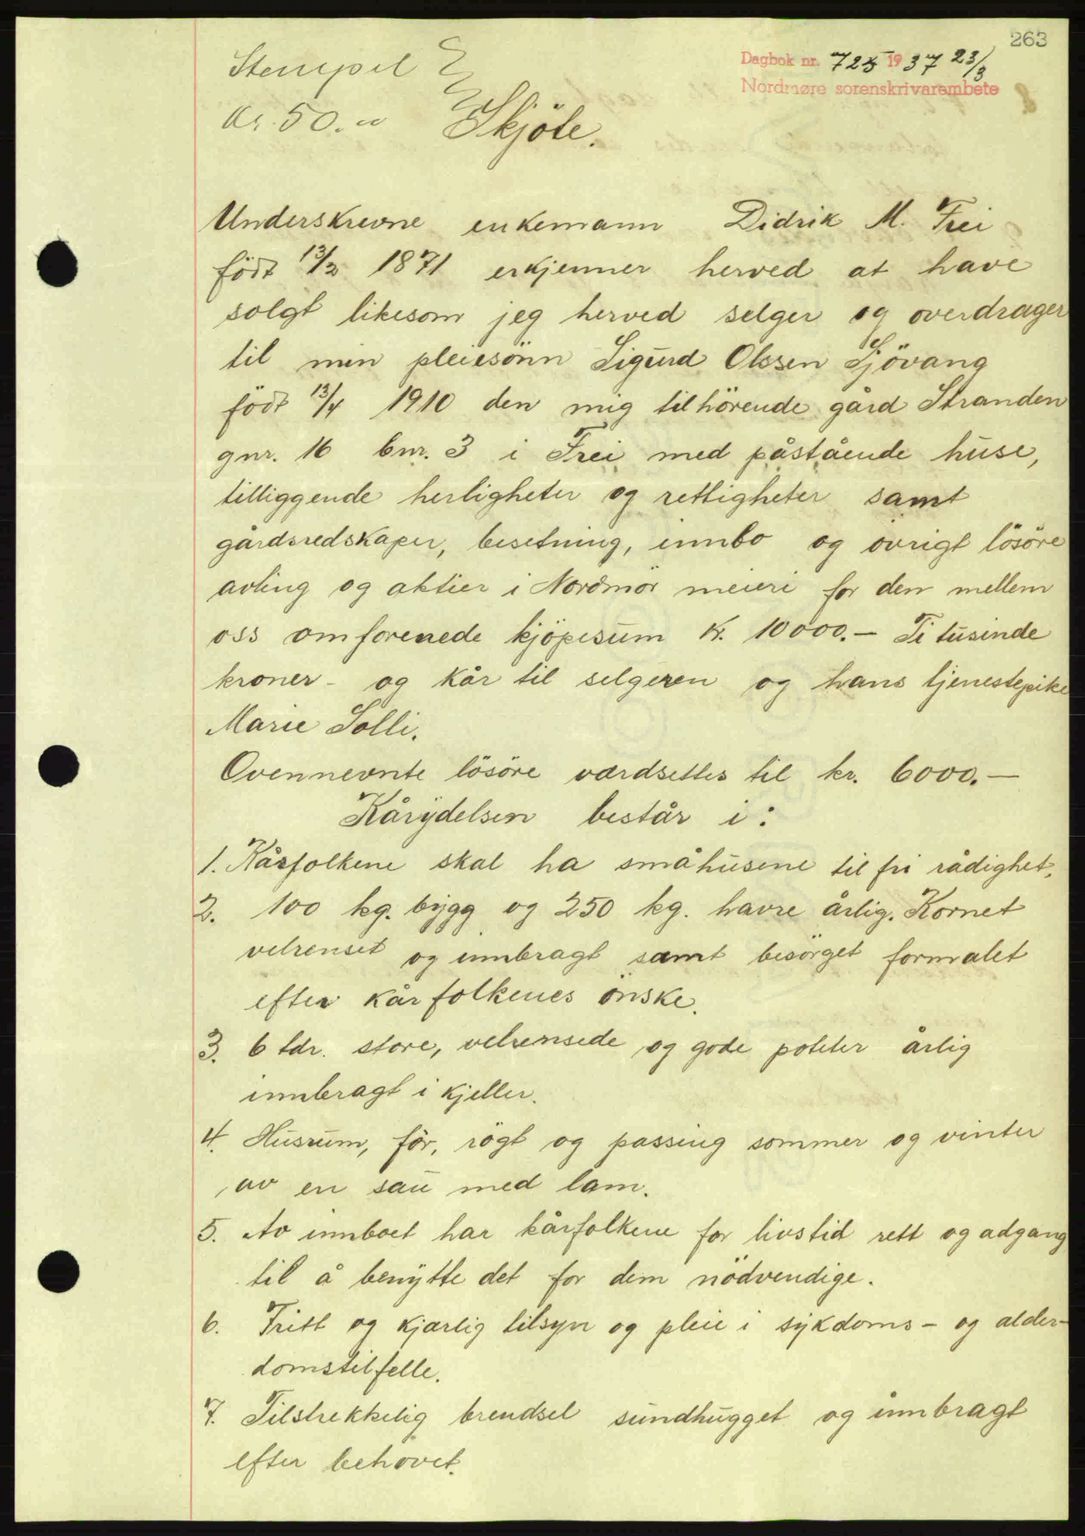 263
Dagbok nr. 725 1937 23/3
Nordmøre sorenskrivarembete
Stempel
kr. 50.00 Skjöte.
Underskrevne enkemann Didrik M. Frei
födt 13/2 1871 erkjenner herved at have
solgt likesom jeg herved selger og overdrager
til min pleiesönn Sigurd Olssen Sjövang
födt 13/4 1910 den mig tilhörende gård Stranden
gnr. 16 bnr. 3 i Frei med påstående huse,
tilliggende herligheter og rettigheter samt
gårdsredskaper, besetning, innbo og övrigt lösöre
avling og aktier i Nordmör meieri for den mellem
oss omforenede kjöpesum kr. 10000.- Ti tusinde
kroner - og kår til selgeren og hans tjenestepike
Marie Solli.
Ovennevnte lösöre værdsettes til kr. 6000.-
Kårydelsen består i:
1. Kårfolkene skal ha småhusene til fri rådighet.
2. 100 kg. bygg og 250 kg. havre årlig. Kornet
velrenset og innbragt samt besörget formalet
efter kårfolkenes önske.
3. 6 tdr. store, velrensede og gode poteter årlig
innbragt i kjeller.
4. Husrum, fôr, rögt og passing sommer og vinter
av en sau med lam.
5. Av innboet har kårfolkene for livstid rett og adgang
til å benytte det for dem nödvendige.
6. Fritt og kjærlig tilsyn og pleie i sykdoms- og alder-
domstilfelle.
7. Tilstrekkelig brendsel sundhugget og innbragt
efter behovet.